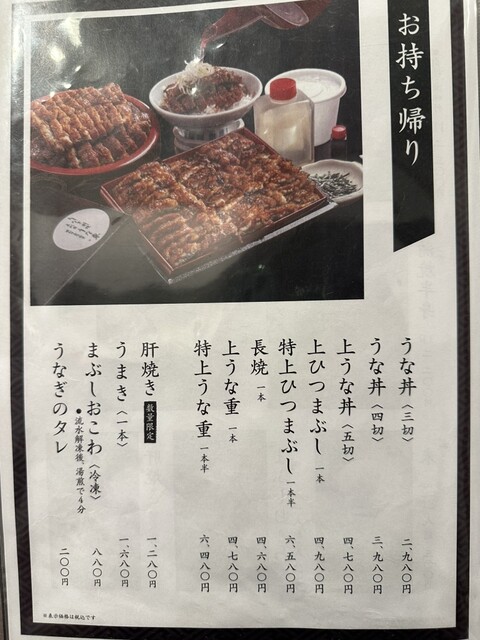 お持ち帰り
うな丼〈三切〉 二、九八〇円
うな丼〈四切〉 三、九八〇円
上うな丼〈五切〉 四、七八〇円
上ひつまぶし 一本 四、九八〇円
特上ひつまぶし 一本半 六、五八〇円
長焼 一本 四、六八〇円
上うな重 一本 四、七八〇円
特上うな重 一本半 六、四八〇円
肝焼き 数量限定 一、二八〇円
うまき〈一本〉 一、六八〇円
まぶしおこわ〈冷凍〉 八八〇円
●流水解凍後、湯煎で4分
うなぎのタレ 二〇〇円
※表示価格は税込です